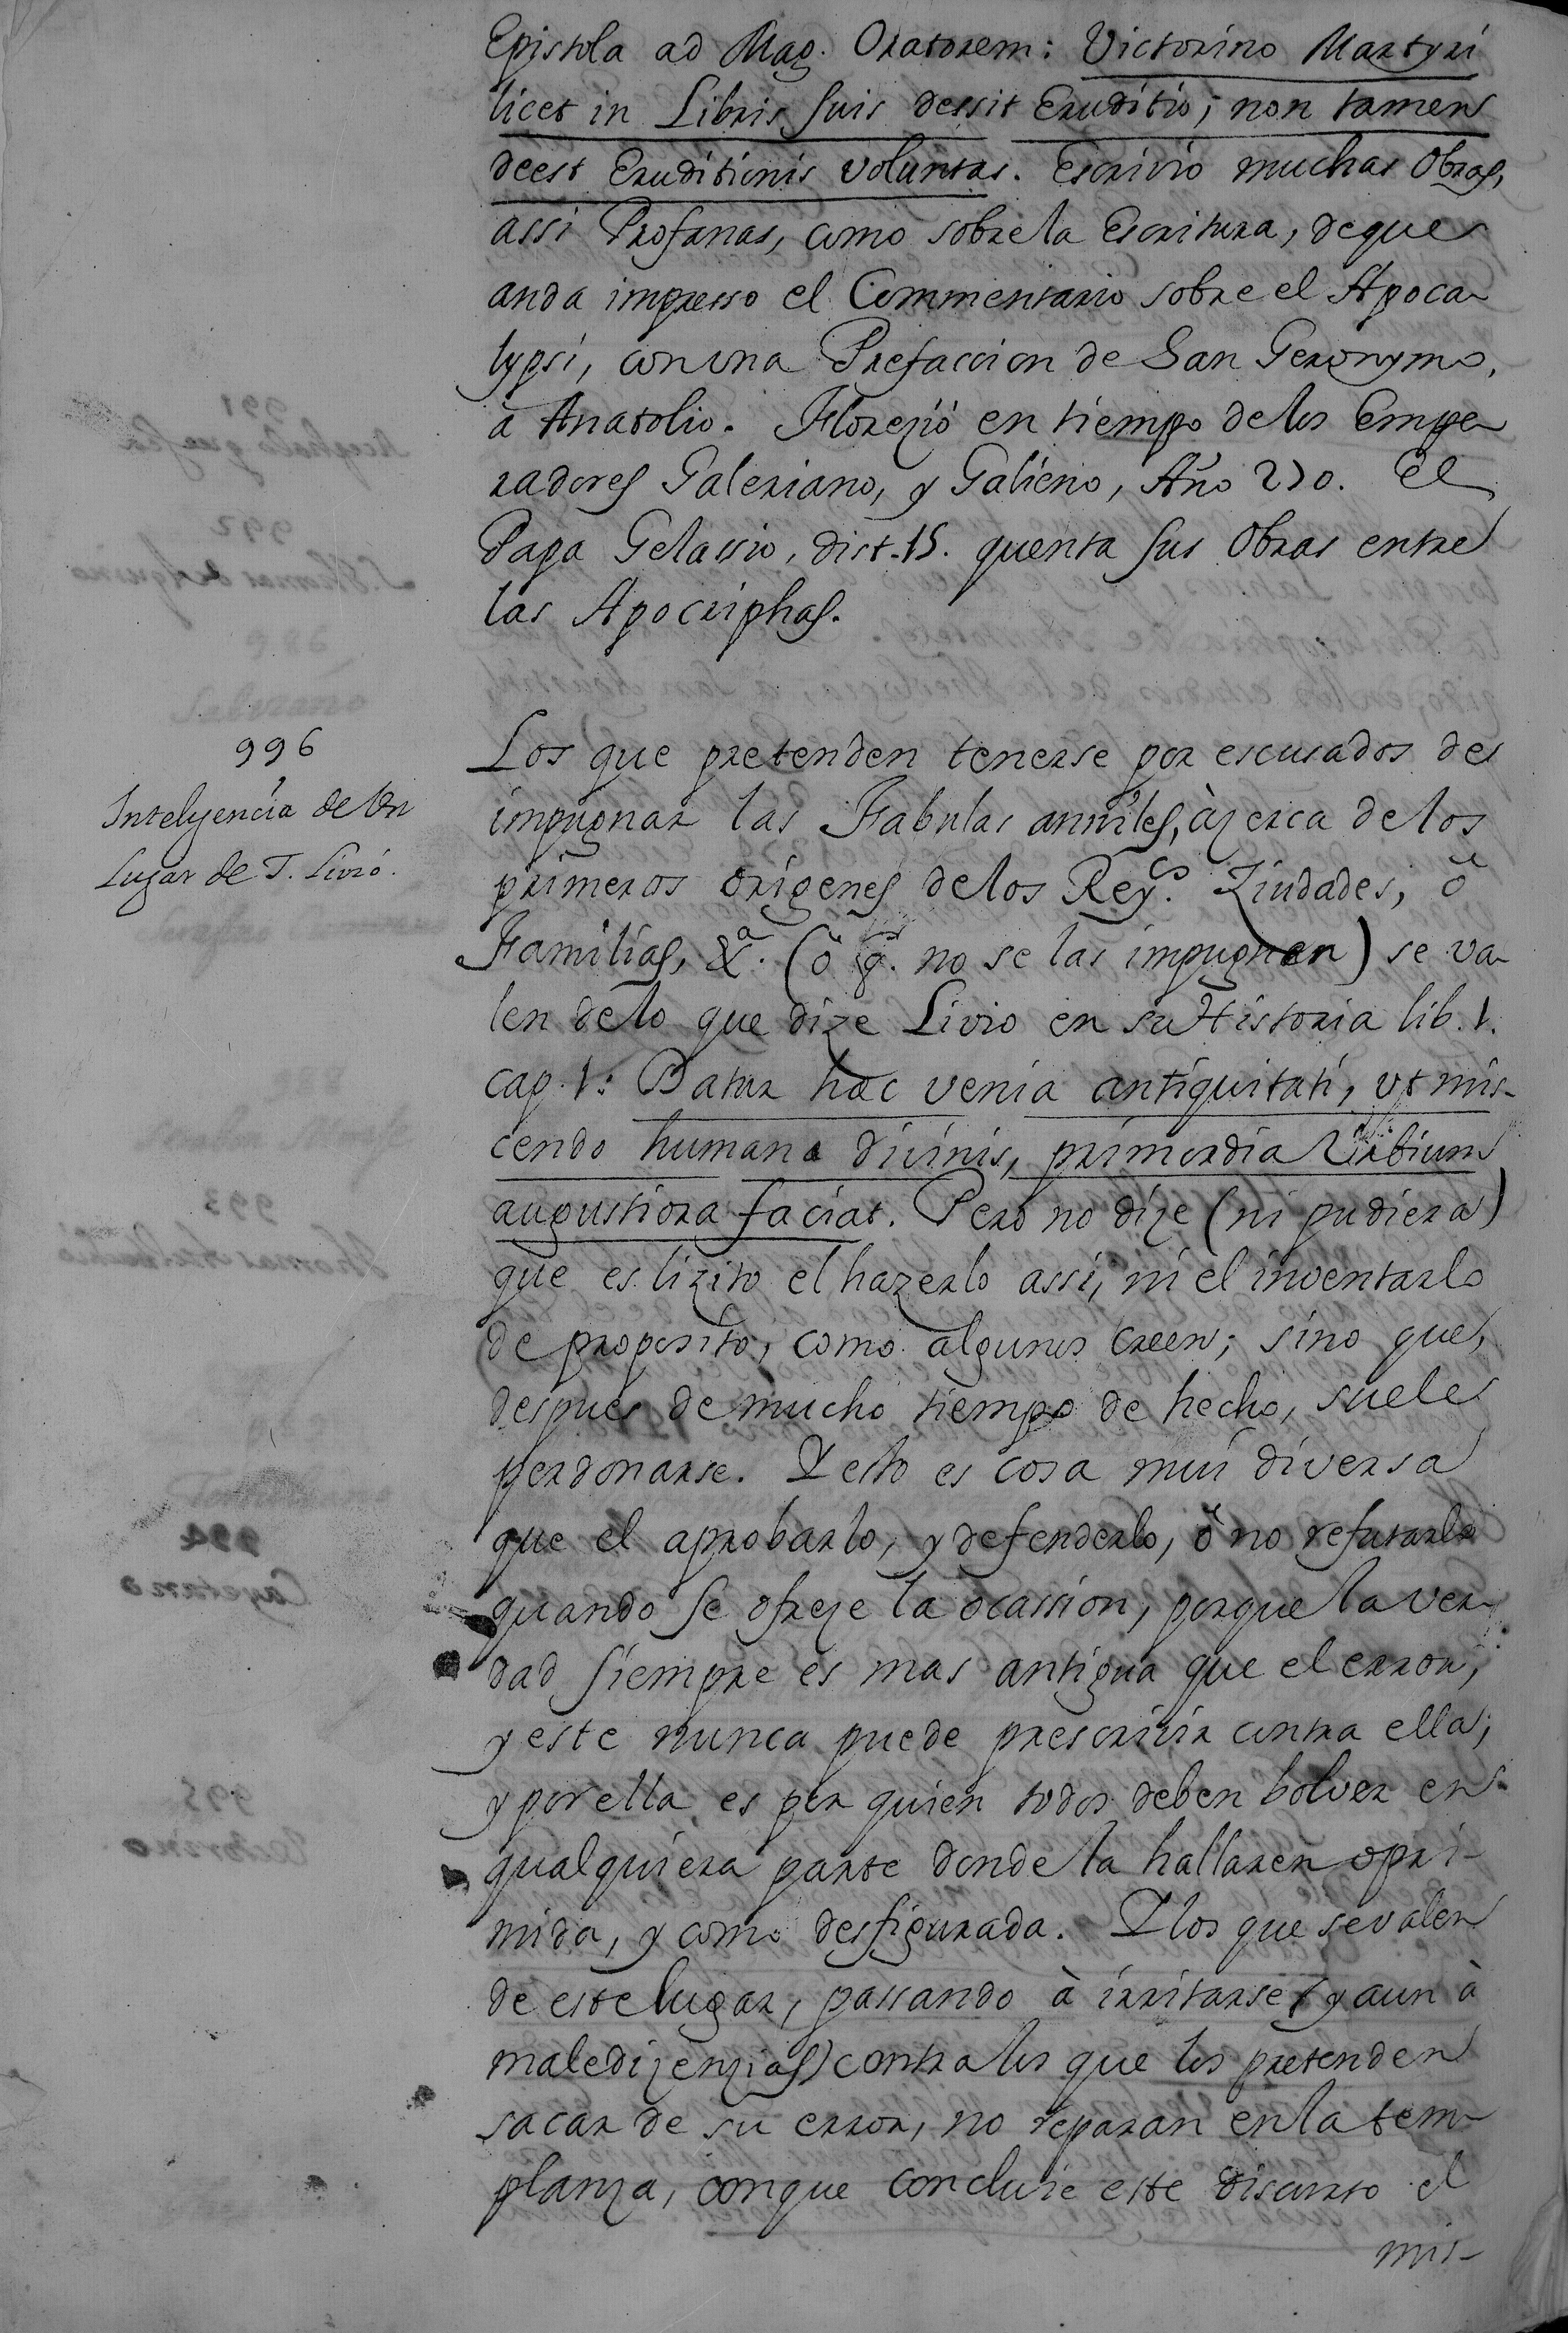 Epistola ad Mag. Oratorem: Victorino Martyri
licet in Libris suis dessit Eruditio; non tamen
deest Eruditionis voluntas. Escrivio muchas Obras,
assi Profanas, como sobre la Escritura, de que
anda impresso el Commentario sobre el Apoca-
lypsi, con una Prefaccion de San Geronymo,
à Anatolio. Florezió en tiempo de los Empe-
radores Galeriano, y Galieno, Año 270. El
Papa Gelassio, dist. 15. quenta sus Obras entre
las Apocriphas.
996
Intelygencia de Un
Lugar de T. Livio.
Los que pretenden tenerse por escusados de
impugnar las Fabulas aniles, àzerca de los
primeros origenes de los Rey.os Ziudades, ò
Familias, &.a (ò q. no se las impugnen) se va-
len de lo que dize Livio en su Historia lib. 1.
cap. 1: Datur hæc venia antiquitati, vt mis-
cendo humana divinis, primordia Urbium
augustiora faciat. Pero no dize (ni pudiera)
que es lizito el hazerlo assi, ni el inventarlo
de proposito, como algunos creen; sino que,
despues de mucho tiempo de hecho, suele
perdonarse. Y esto es cosa mui diversa
que el aprobarlo, y defenderlo, ò no refutarlo
quando se ofreze la ocassion, porque la ver-
dad siempre es mas antigua que el error,
y este nunca puede prescrivir contra ella;
y por ella, es por quien todos deben bolver en
qualquiera parte donde la hallaren opri-
mida, y como desfigurada. Y los que se valen
de este lugar, passando à irritarse (y aun à
maledizenzias) contra los que los pretenden
sacar de su error, no reparan en la tem-
planza, con que concluie este discurso el
mis-